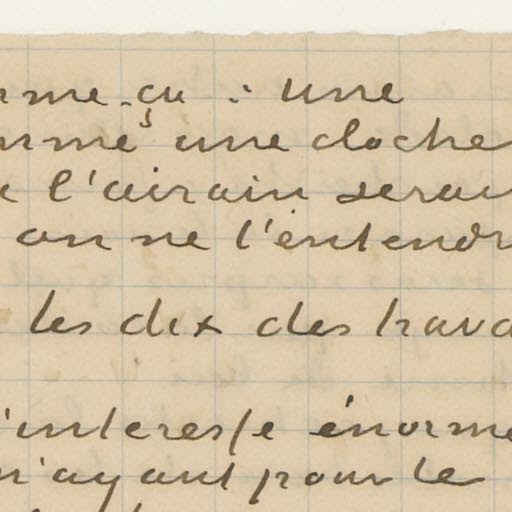 rme çu : une
mme une cloche
l'airain serai
on ne l'entendr
les dix des trava
'interesse énorme
n'ayant pour le